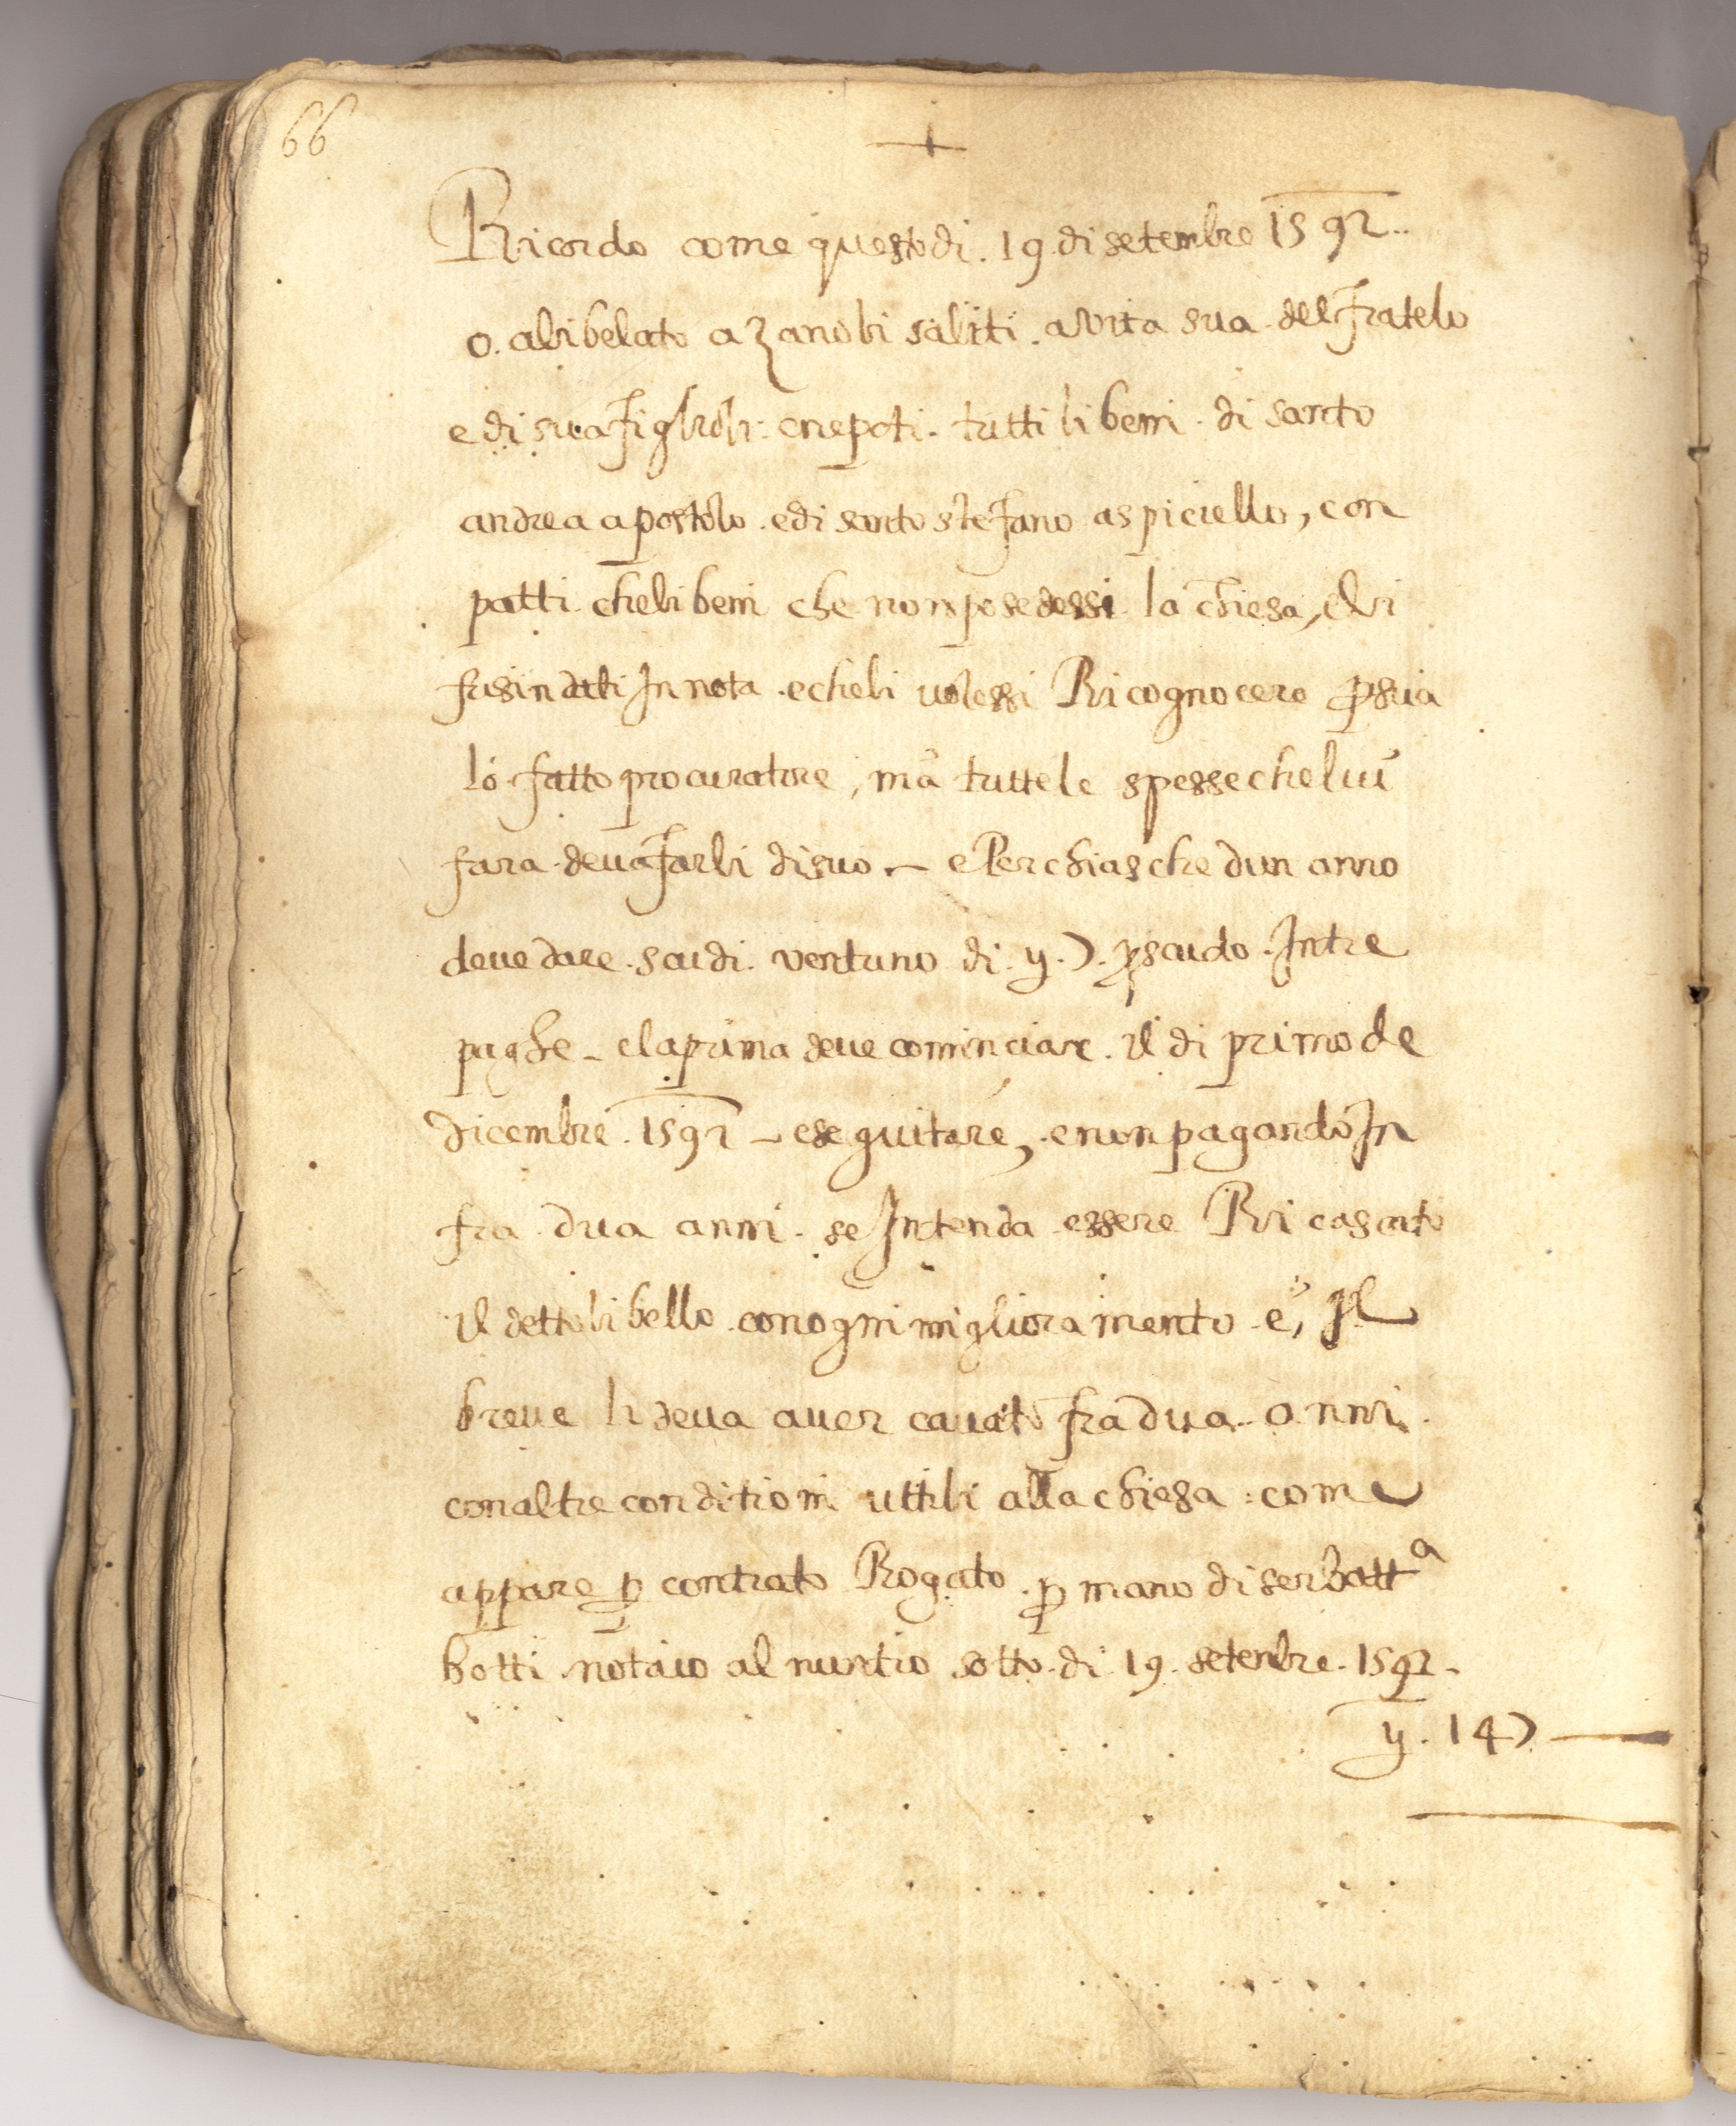 66
+
Ricordo come questo di. 19. di setembre 1592..
o. alibelato a Zanobi saliti. a vita sua. del fratelo
e di sua figlioli: e nepoti. tutti li beni. di santo
andrea apostolo. e di santo stefano a
patti. che li beni che non posedessi la chiesa, e li
in nota. e che li volessi Ricognocere p sua
lo fatto procuratore, ma tutte le spesse che lui
fara. deva farli di suo. — e Per chiasche dun anno
deve dare. scudi. ventuno di. y. 7. p scudo. In tre
paghe — e la prima deve cominciare. il di primo de
dicembre. 1592 — e seguitare, e non pagando In
fra dua anni. se Intenda essere Ricascato
il detto libello. con ogni miglioramento. e, Il
breve li deva aver cavato fra dua.. anni.
con altre conditioni uttili alla chiesa: come
appare p contrato Rogato. p mano di ser batt^a
botti. notaio al nuntio sotto. di. 19. setenbre. 1592.
y. 147 —